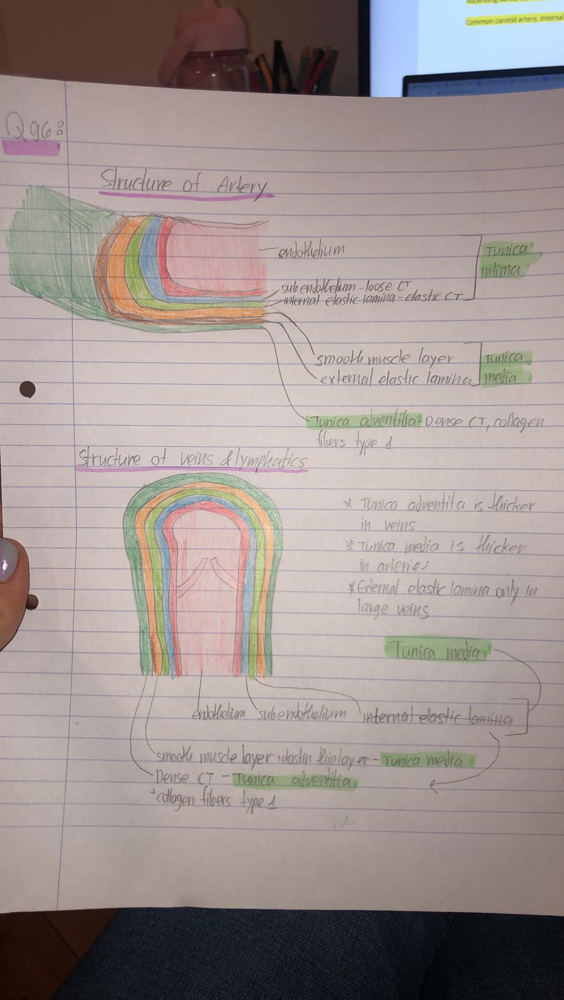 Ascending
Common carotid artery, internal
Q96:
Structure of Artery
endothelium
subendothelium - loose CT
internal elastic lamina - elastic CT
Tunica
intima
smooth muscle layer
external elastic lamina
Tunica
media
Tunica adventitia - Dense CT, collagen
fibers type 1
Structure of veins & lymphatics
* Tunica adventita is thicker
in veins
* Tunica media is thicker
in arteries
* External elastic lamina only in
large veins
Tunica media
endothelium subendothelium internal elastic lamina
smooth muscle layer + elastin thin layer - Tunica media
Dense CT - Tunica adventitia
+ collagen fibers type 1